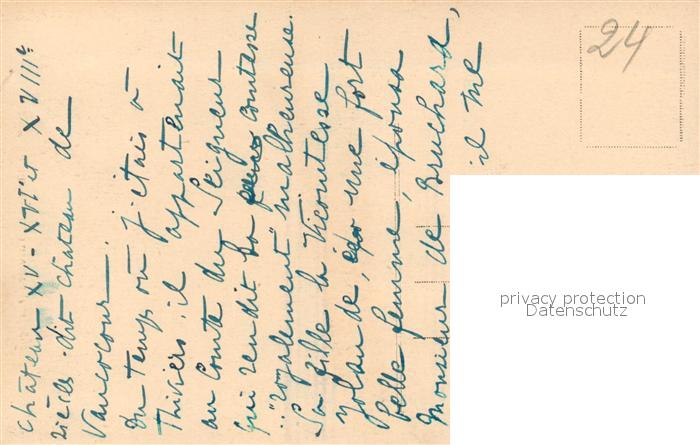 Château XV - XVI et XVIIIe
siècles - dit Château de
Vaucocour.
Du temps où j'étais à
Thiviers il appartenait
au Comte du Seigneur
qui rendit la comtesse
"royalement" malheureuse.
Sa fille la Vicomtesse
Yolande, une fort
belle femme, épousa
Monsieur de Bruchard,
il me
24
privacy protection
Datenschutz